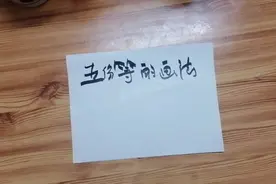 五份等的画法